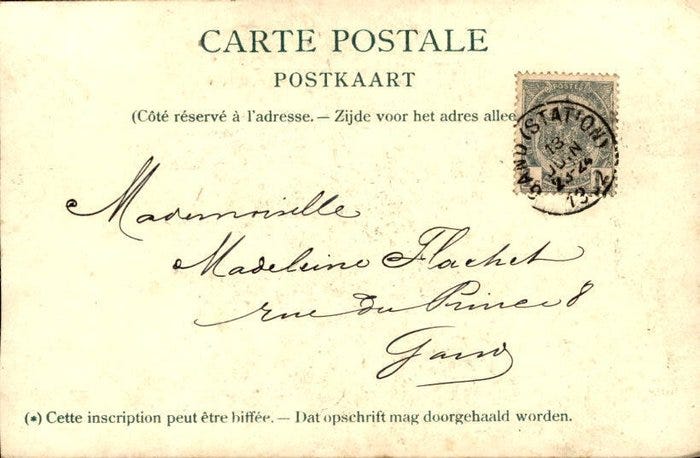 CARTE POSTALE
POSTKAART
(Côté réservé à l'adresse. — Zijde voor het adres allee
POSTES
GAND (STATION)
13
JUIN
Mademoiselle
Madeleine Flachet
rue du Prince 8
Gand
(*) Cette inscription peut être biffée. — Dat opschrift mag doorgehaald worden.